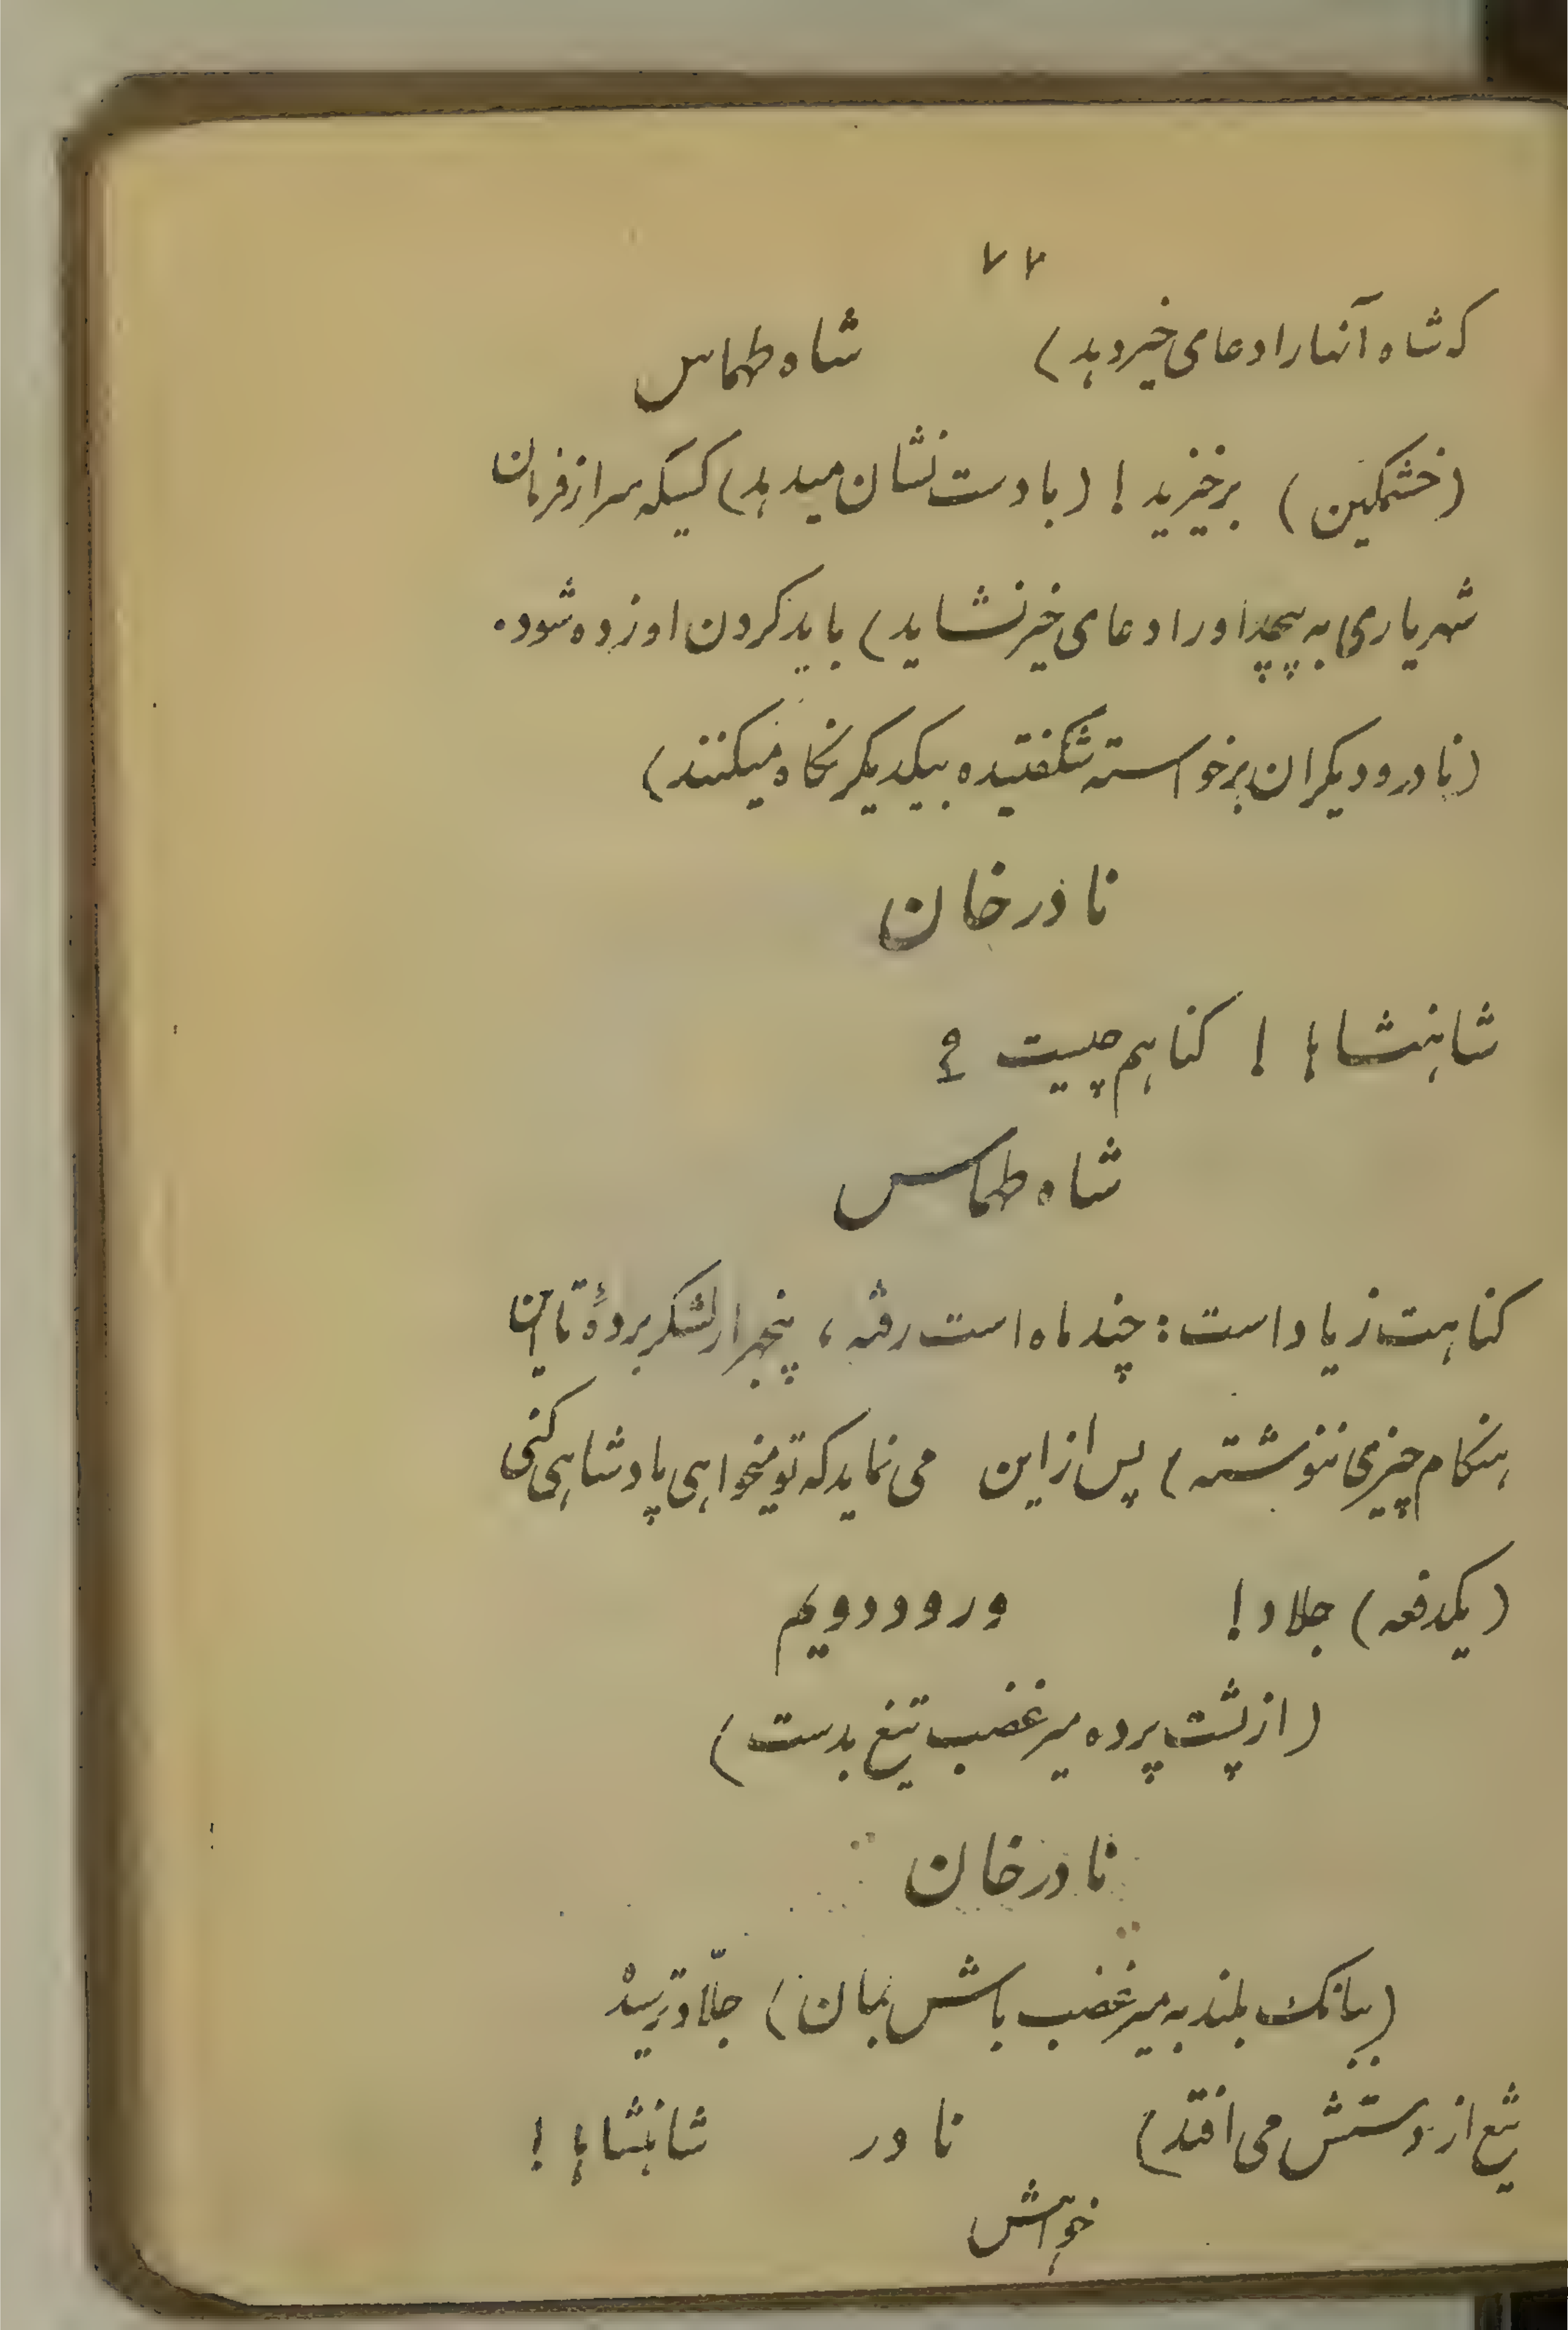 ۷۲
که شاه آنها را دعای خیر دهد) شاه طهماس
(خشمکین) برخیزید! (با دست نشان میدهد) کسیکه سر از فرمان
شهریاری به پیچد او را دعای خیر نشاید) باید کردن او زده شود.
(نادر و دیکران برخواسته شکفتیده بیکدیکر نکاه میکنند)
نادرخان
شاهنشاها! کناهم چیست ؟
شاه طهماسس
کناهت زیاد است: چند ماه است رفته، پنجهزار لشکر بردهٔ تا این
هنکام چیزی ننوشته) پس از این می نماید که تو میخواهی پادشاهی کنی
(یکدفعه) جلاد! ورود دویم
(از پشت پرده میرغضب تیغ بدست)
نادرخان
(ببانک بلند به میرغضب باش بمان) جلّاد ترسیدْ
تیغ از دستش می افتد) نادر شاهنشاها!
خواهش